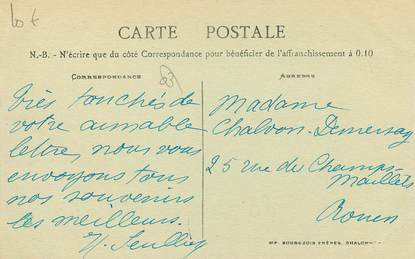 Lot
CARTE POSTALE
N.-B. - N'écrire que du côté Correspondance pour bénéficier de l'affranchissement à 0.10
CORRESPONDANCE
ADRESSE
Très touchés de
votre aimable
lettre, nous vous
envoyons tous
nos souvenirs
les meilleurs.
Madame
Chalvon-Demersay
25 rue de Champs-
Maillets
Rouen
MP. BOURGEOIS FRÈRES, CHALON-